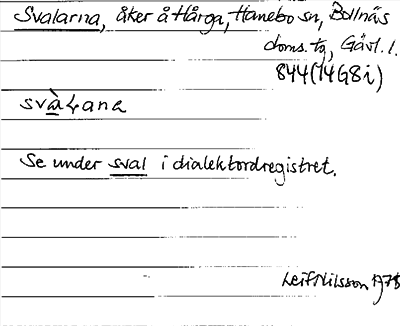 Svalarna, åker å Hårga, Hanebo sn, Bollnäs
doms. tg, Gävl. l.
844(14G8i)
svàɫana
Se under sval i dialektordregistret.
Leif Nilsson